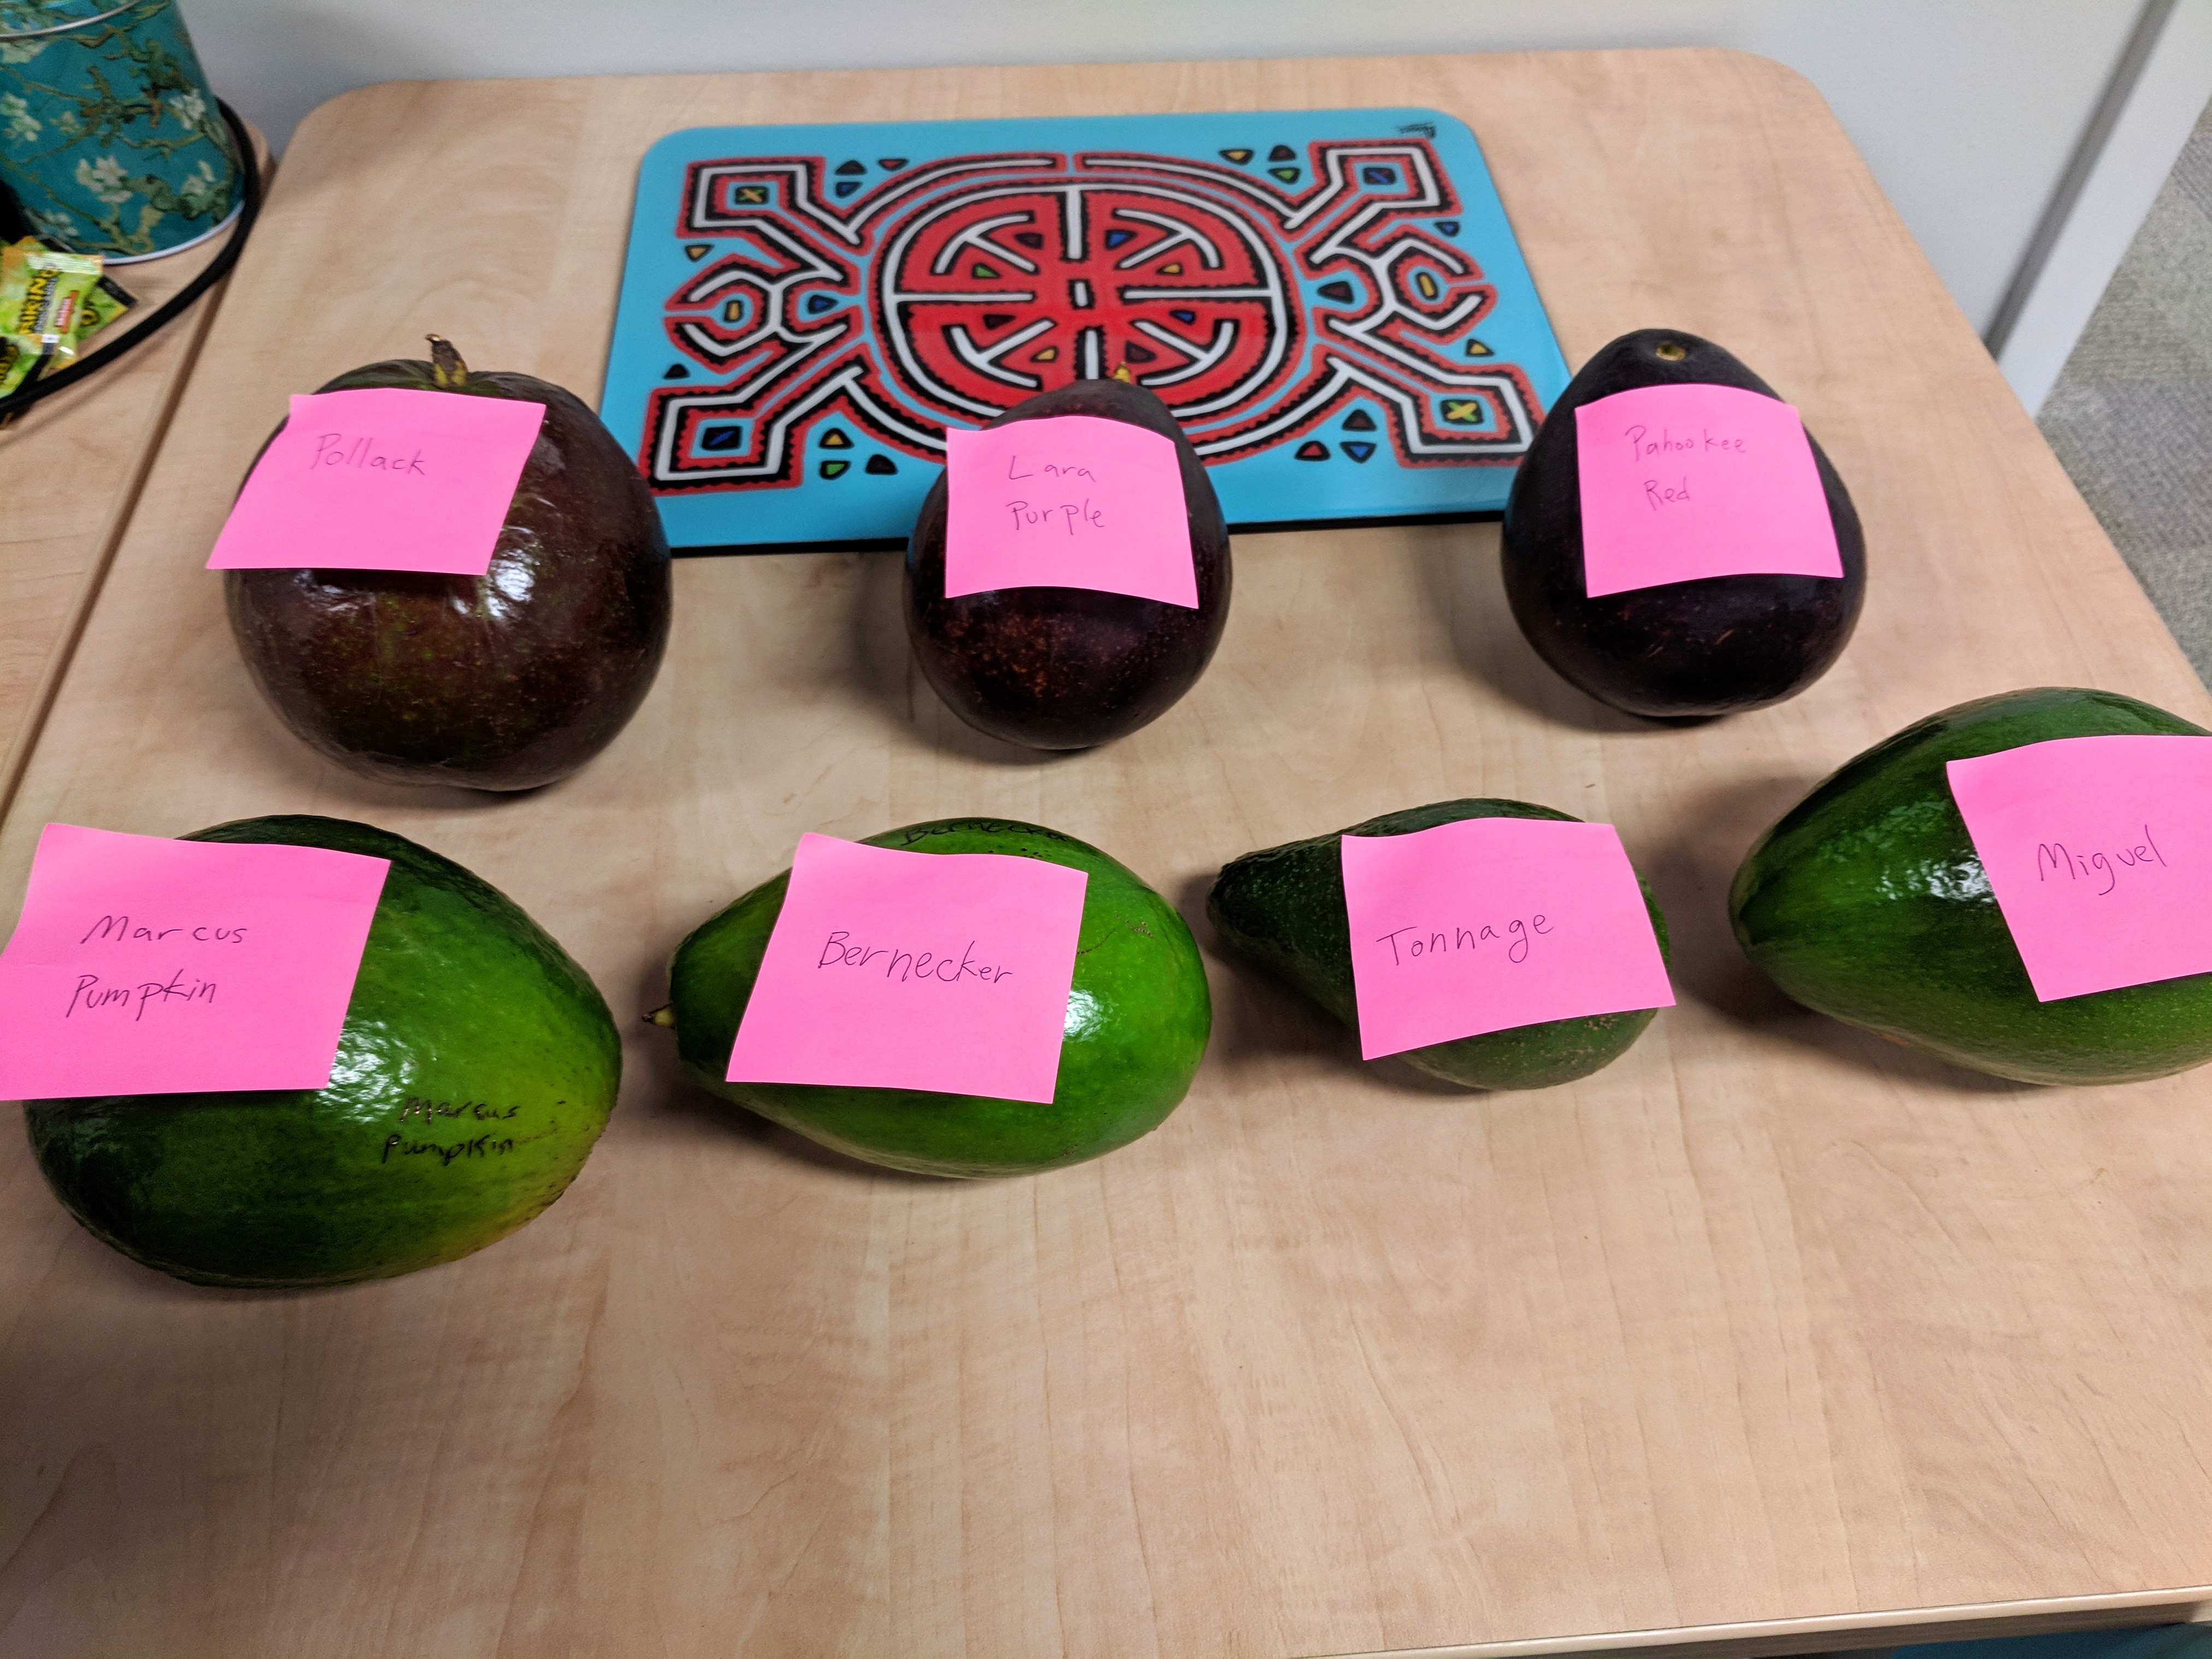 Pollack
Lara
Purple
Pahookee
Red
Marcus
Pumpkin
Marcus
Pumpkin
Bernecker
Bernecker
Tonnage
Miguel